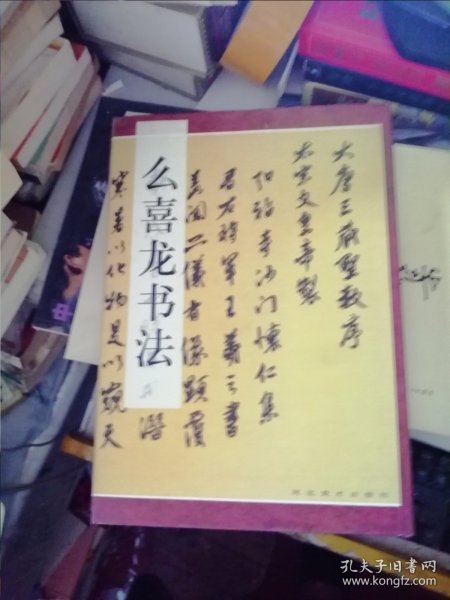 么喜龙书法
大唐三藏聖教序
太宗文皇帝製
弘福寺沙门懷仁集
晋右将軍王羲之書
盖闻二儀有像顯覆
潜
寒暑以化物是以窥天
孔夫子旧书网
www.kongfz.com